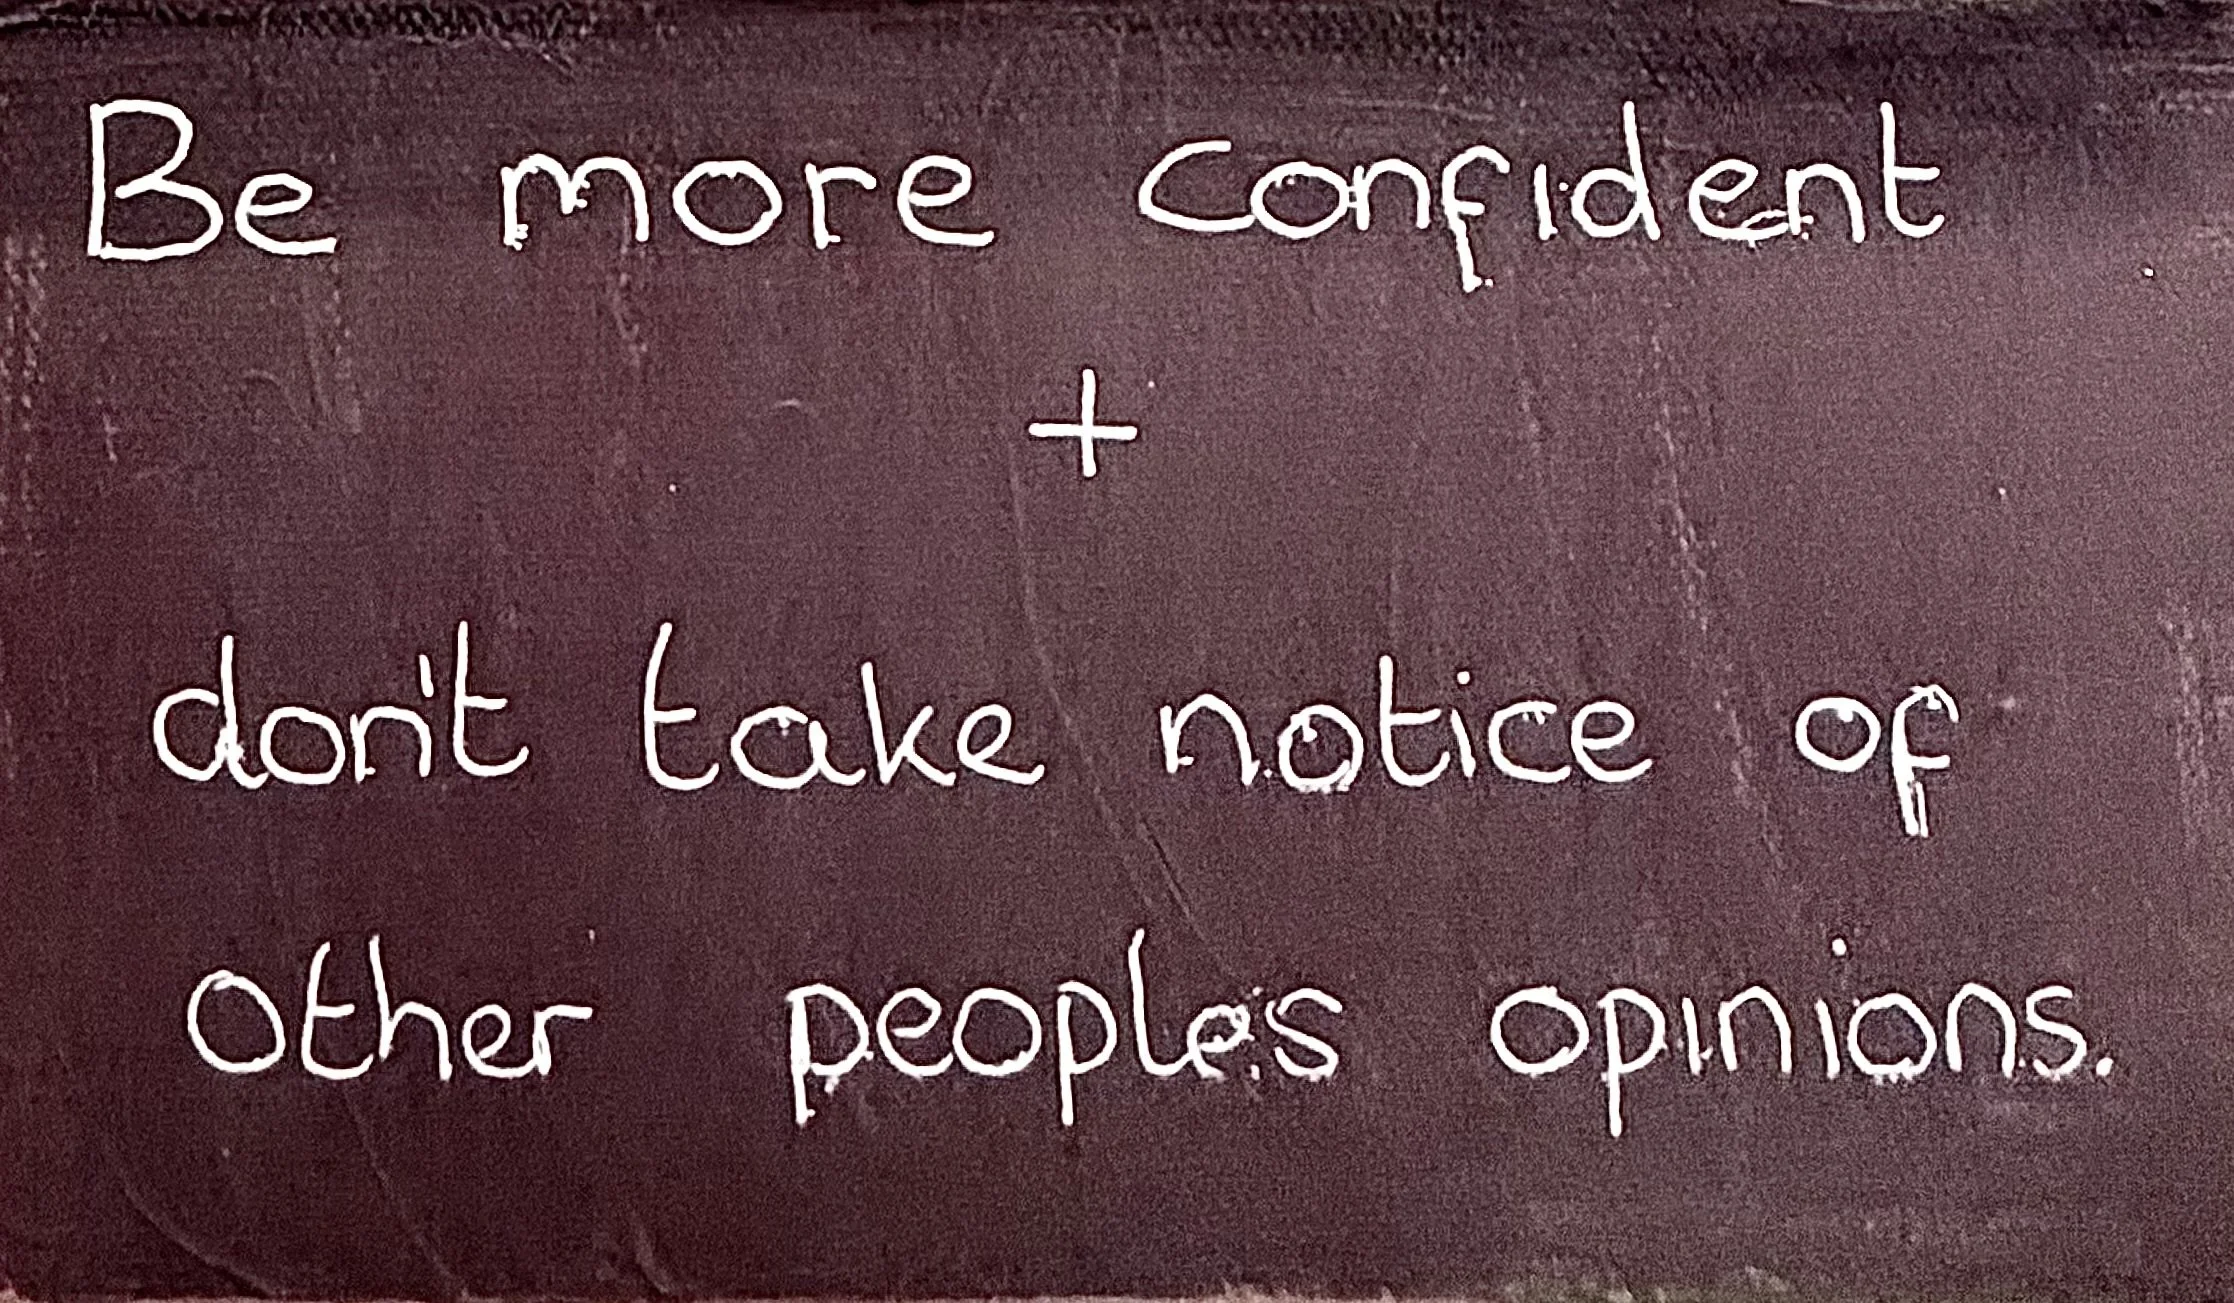 Be more confident
+
don't take notice of
other peoples opinions.